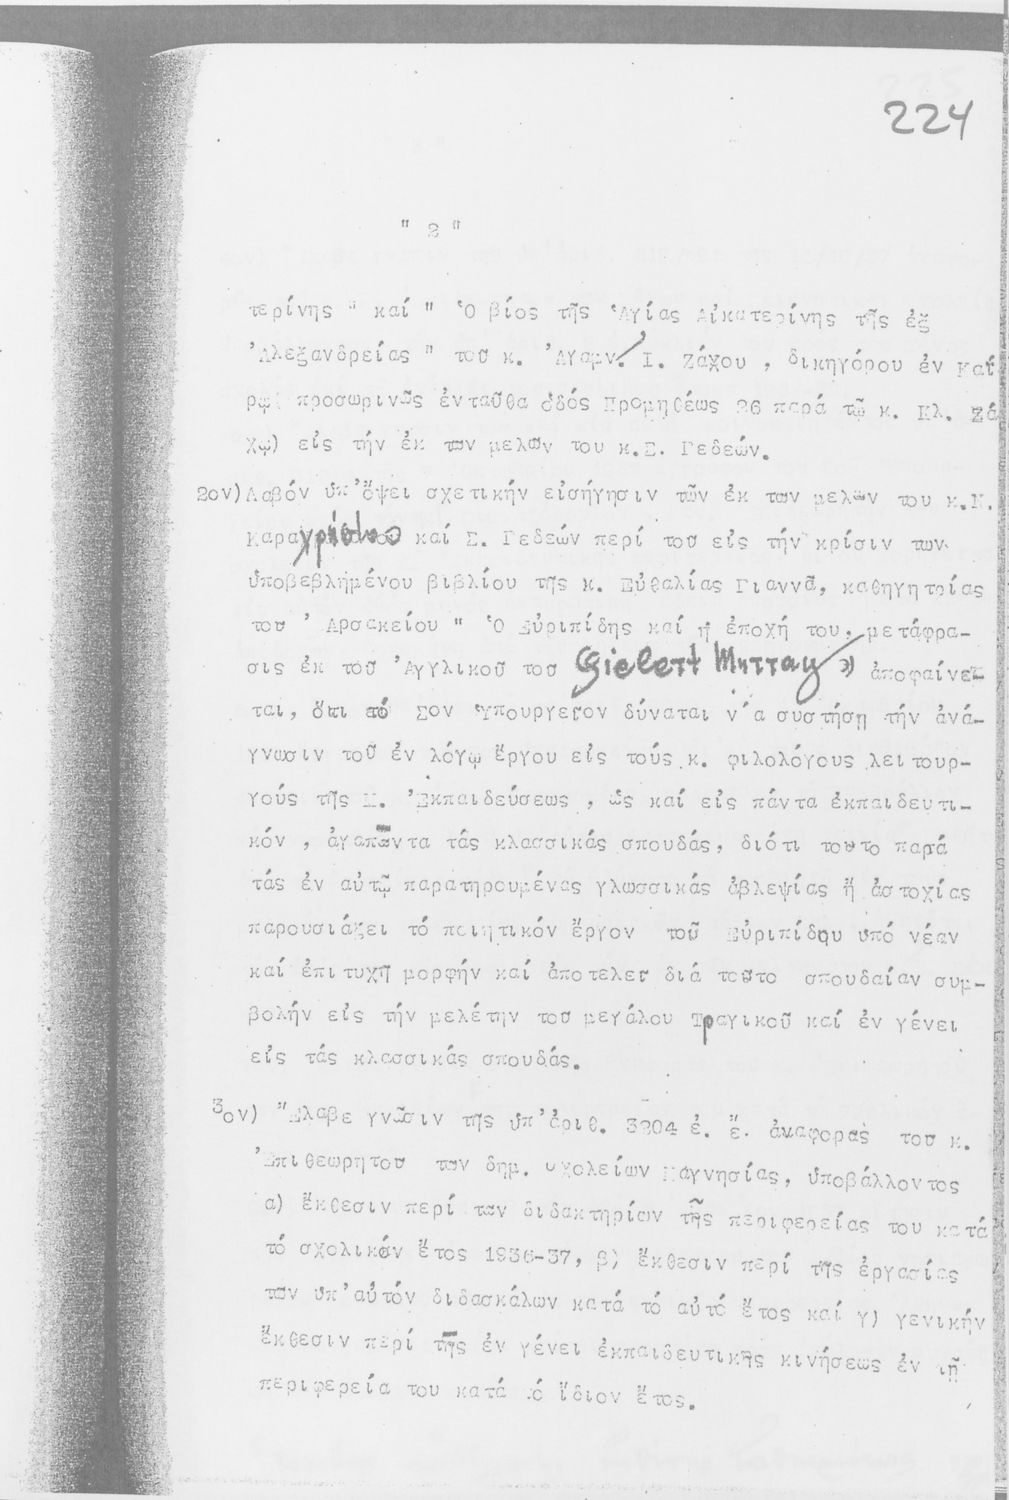 224
" 2 "
τερίνης " καί " Ὁ βίος τῆς Ἁγίας Αἰκατερίνης τῆς ἐξ
Ἀλεξανδρείας " τοῦ κ. Ἀγαμν. Ι. Ζάχου , δικηγόρου ἐν Καΐ
ρῳ( προσωρινῶς ἐνταῦθα ὁδός Προμηθέως 26 παρά τῷ κ. Κλ. Ζά
χῳ) εἰς τήν ἐκ των μελῶν του κ.Σ. Γεδεών.
2ον) Λαβόν ὑπ'ὄψει σχετικήν εἰσήγησιν τῶν ἐκ των μελῶν του κ.Ν.
Καραχρήστου καί Σ. Γεδεών περί του εἰς τήν κρίσιν των
ὑποβεβλημένου βιβλίου τῆς κ. Εὐθαλίας Γιαννᾶ, καθηγητρίας
του ' Αρσακείου " Ὁ Εὐριπίδης καί ἡ ἐποχή του, μετάφρα-
σις ἐκ τοῦ Ἀγγλικοῦ τοῦ Gielert Murray " ἀποφαίνε-
ται, ὅτι τό Σον Ὑπουργεῖον δύναται ν'α συστήσῃ τήν ἀνά-
γνωσιν τοῦ ἐν λόγῳ ἔργου εἰς τούς κ. φιλολόγους λειτουρ-
γούς τῆς Μ. Ἐκπαιδεύσεως , ὡς καί εἰς πάντα ἐκπαιδευτι-
κόν , ἀγαπῶντα τάς κλασσικάς σπουδάς, διότι τοῦτο παρά
τάς ἐν αὐτῷ παρατηρουμένας γλωσσικάς ἀβλεψίας ἤ ἀστοχίας
παρουσιάζει τό ποιητικόν ἔργον τοῦ Εὐριπίδου ὑπό νέαν
καί ἐπιτυχῆ μορφήν καί ἀποτελεῖ διά τοῦτο σπουδαίαν συμ-
βολήν εἰς τήν μελέτην τοῦ μεγάλου Τραγικοῦ καί ἐν γένει
εἰς τάς κλασσικάς σπουδάς.
3ον) Ἔλαβε γνῶσιν τῆς ὑπ'ἀριθ. 3204 ἐ. ἔ. ἀναφορᾶς τοῦ κ.
Ἐπιθεωρητοῦ των δημ. σχολείων Μαγνησίας, ὑποβάλλοντος
α) ἔκθεσιν περί των διδακτηρίων τῆς περιφερείας του κατά
τό σχολικόν ἔτος 1936-37, β) ἔκθεσιν περί τῆς ἐργασίας
των ὑπ'αὐτόν διδασκάλων κατά τό αὐτό ἔτος καί γ) γενικήν
ἔκθεσιν περί τῆς ἐν γένει ἐκπαιδευτικῆς κινήσεως ἐν τῇ
περιφερεία του κατά τό ἴδιον ἔτος.